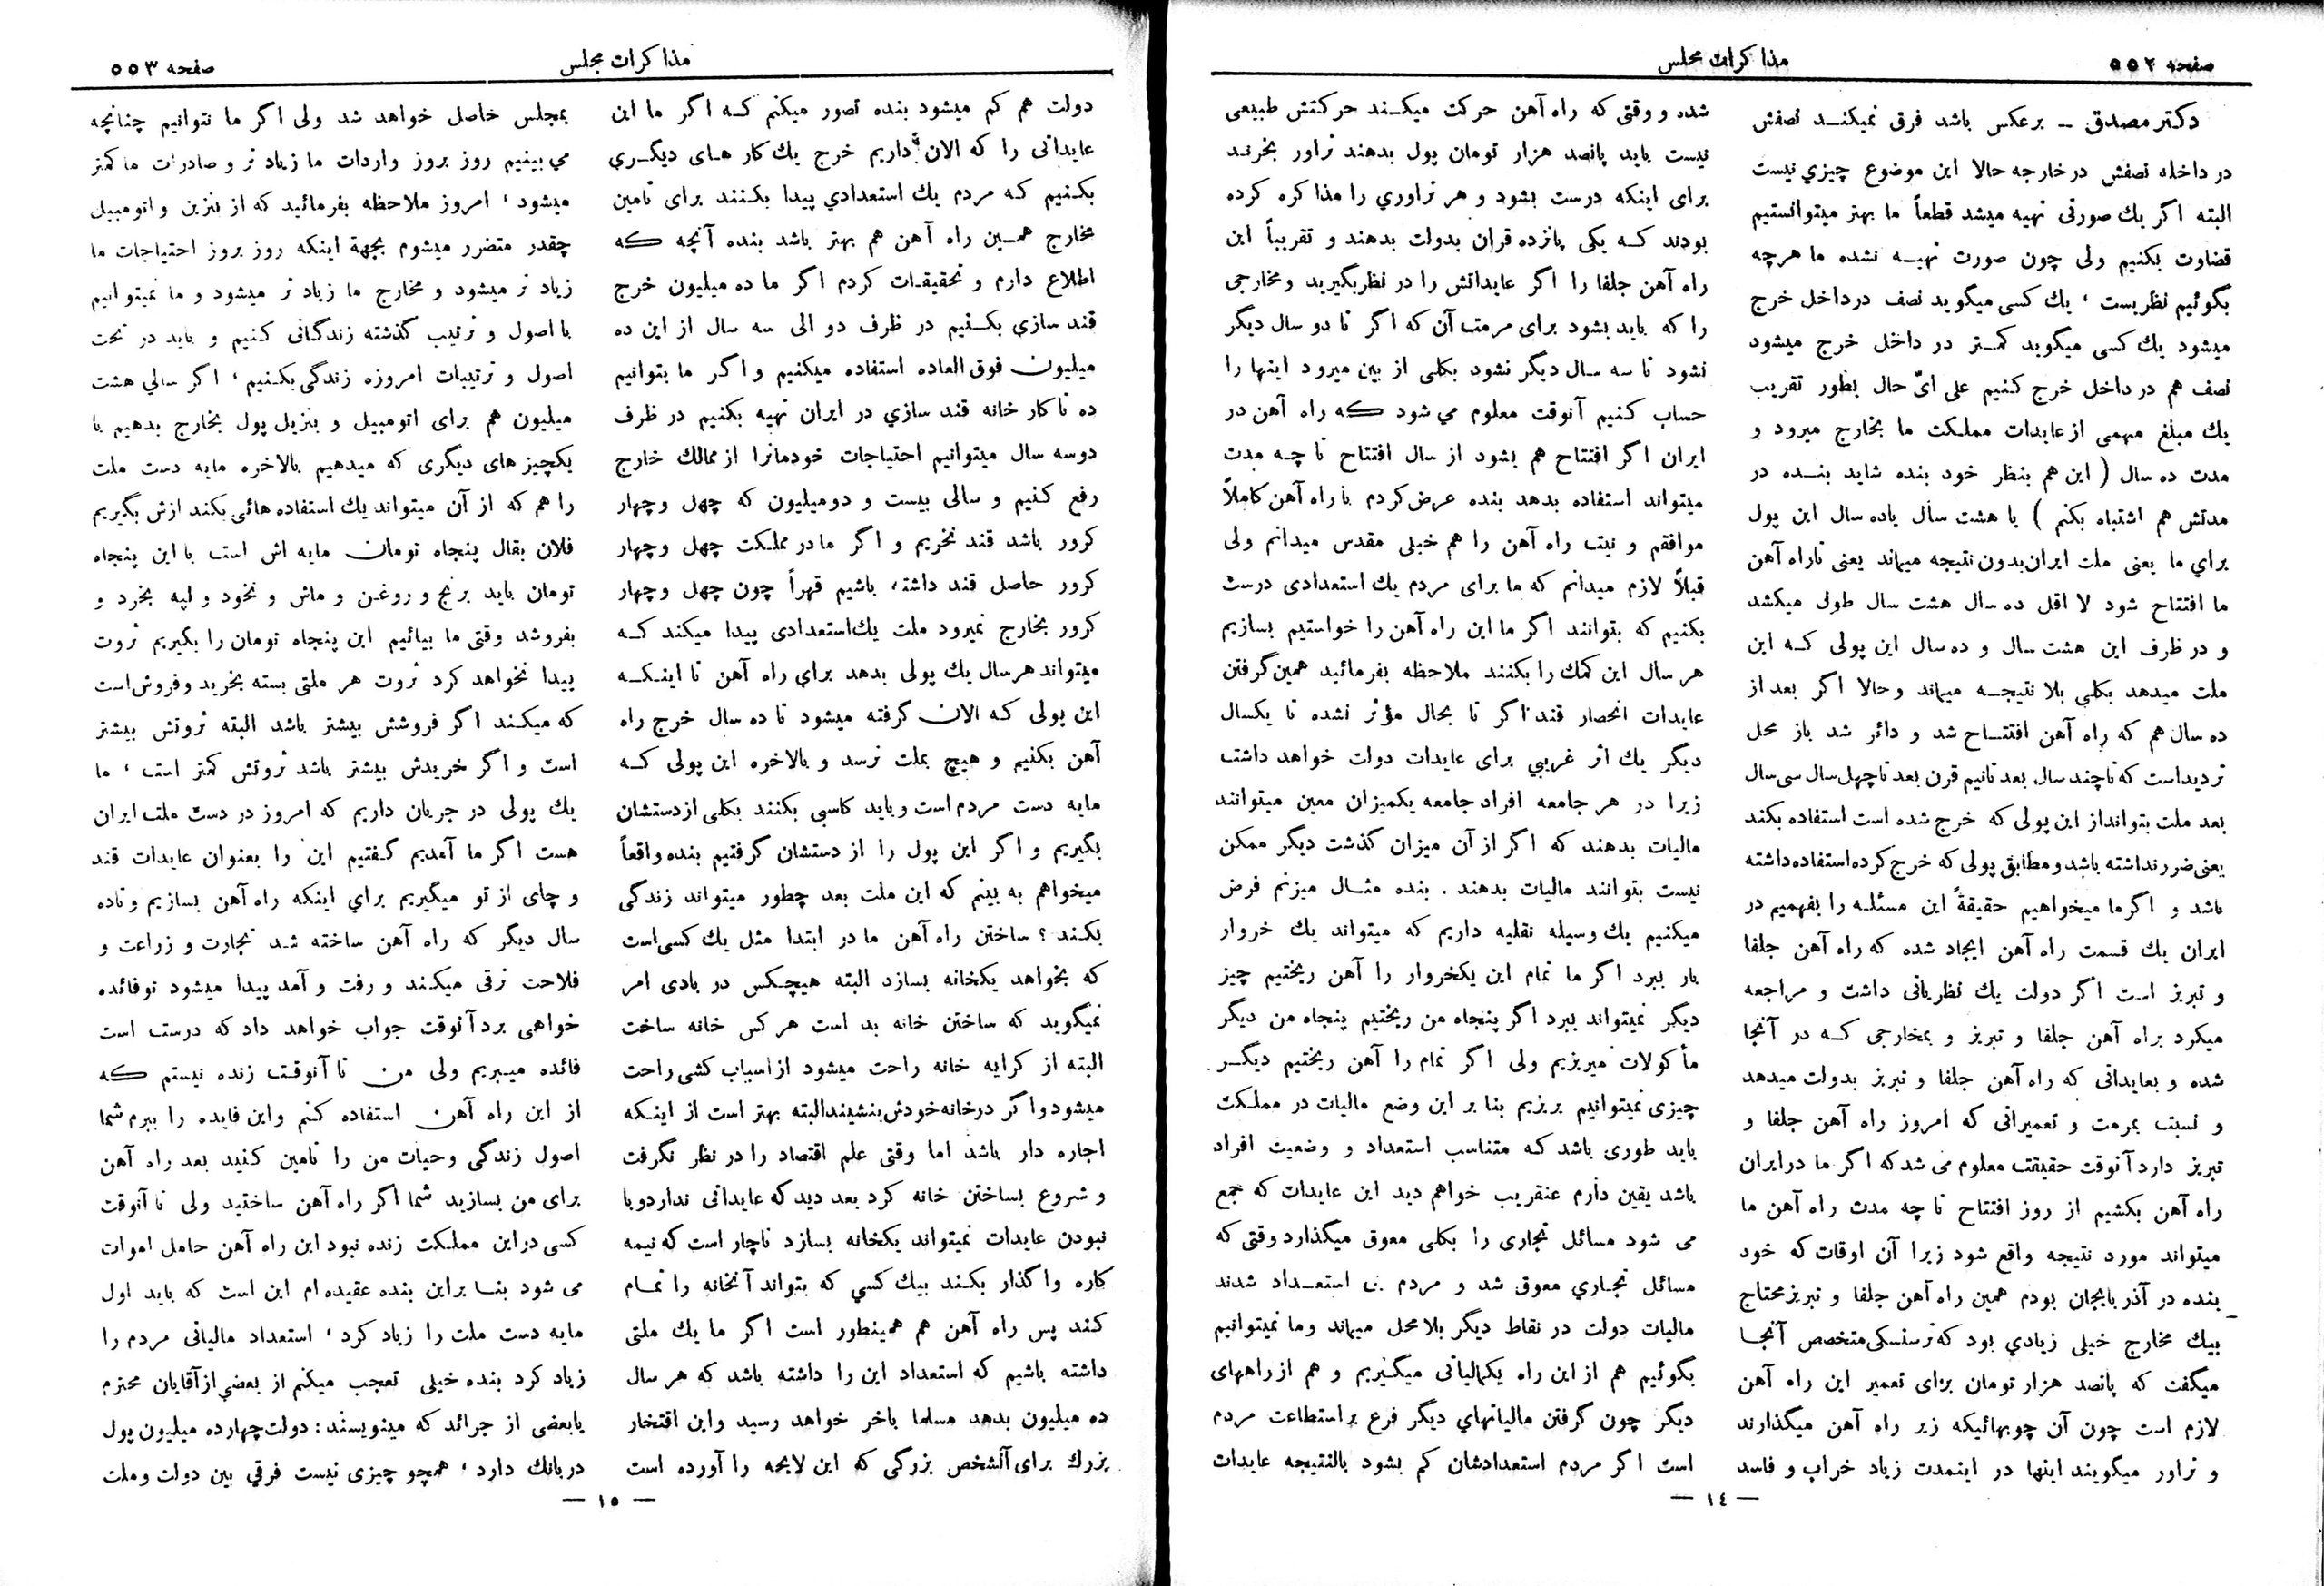 صفحه ٥٥٢
مذاکرات مجلس
دکتر مصدق ــ برعکس باشد فرق نمیکنــد نصفش
در داخله نصفش در خارجه حالا این موضوع چیزي نیست
البته اگر یك صورتی تهیه میشد قطعاً ما بهتر میتوانستیم
قضاوت بکنیم ولی چون صورت تهیــه نشده ما هرچه
بگوئیم نظریست ، یك کسی میگوید نصف در داخل خرج
میشود یك کسی میگوید کمـتر در داخل خرج میشود
نصف هم در داخل خرج کنیم علی ایّ حال بطور تقریب
یك مبلغ مهمی از عایدات مملکت ما بخارج میرود و
مدت ده سال ( این هم بنظر خود بنده شاید بنــده در
مدتش هم اشتباه بکنم ) یا هشت سال یاده سال این پول
براي ما یعنی ملت ایران بدون نتیجه میماند یعنی تاراه آهن
ما افتتاح شود لا اقل ده سال هشت سال طول میکشد
و در ظرف این هشت سال و ده سال این پولی کــه این
ملت میدهد بکلی بلا نتیجــه میماند و حالا اگر بعد از
ده سال هم که راه آهن افتتــاح شد و دائر شد باز محل
تردیداست که تاچند سال بعد تانیم قرن بعد تاچهل سال سی سال
بعد ملت بتواند از این پولی که خرج شده است استفاده بکند
یعنی ضرر نداشته باشد و مطابق پولی که خرج کرده استفاده داشته
باشد و اگر ما میخواهیم حقیقةً این مسئلــه را بفهمیم در
ایران یك قسمت راه آهن ایجاد شده که راه آهن جلفا
و تبریز است اگر دولت یك نظریاتی داشت و مراجعه
میکرد براه آهن جلفا و تبریز و بمخارجی کــه در آنجا
شده و بعایداتی که راه آهن جلفا و تبریز بدولت میدهد
و نسبت بمرمت و تعمیراتی که امروز راه آهن جلفا و
تبریز دارد آنوقت حقیقت معلوم می شد که اگر ما در ایران
راه آهن بکشیم از روز افتتاح تا چه مدت راه آهن ما
میتواند مورد نتیجه واقع شود زیرا آن اوقات که خود
بنده در آذربایجان بودم همین راه آهن جلفا و تبریز محتاج
بیك مخارج خیلی زیادي بود که ترسنسکی متخصص آنجــا
میگفت که پانصد هزار تومان برای تعمیر این راه آهن
لازم است چون آن چوبهائیکه زیر راه آهن میگذارند
و تراور میگویند اینها در اینمدت زیاد خراب و فاسد
شده و وقتی که راه آهن حرکت میکــند حرکتش طبیعی
نیست باید پانصد هزار تومان پول بدهند تراور بخرنـد
برای اینکه درست بشود و هر تراوري را مذاکره کرده
بودند کــه یکی پانزده قران بدولت بدهند و تقریباً این
راه آهن جلفا را اگر عایداتش را در نظر بگیرید و مخارجی
را که باید بشود برای مرمت آن که اگر تا دو سال دیگر
نشود تا سه سال دیگر نشود بکلی از بین میرود اینها را
حساب کنیم آنوقت معلوم می شود که راه آهن در
ایران اگر افتتاح هم بشود از سال افتتاح تا چــه مدت
میتواند استفاده بدهد بنده عرض کردم با راه آهن کاملاً
موافقم و نیت راه آهن را هم خیلی مقدس میدانم ولی
قبلاً لازم میدانم که ما برای مردم یك استعدادی درست
بکنیم که بتوانند اگر ما این راه آهن را خواستیم بسازیم
هر سال این کمك را بکنند ملاحظه بفرمائید همین گرفتن
عایدات انحصار قند اگر تا بحال مؤثر نشده تا یکسال
دیگر یك اثر غریبي برای عایدات دولت خواهد داشت
زیرا در هر جامعه افراد جامعه یکمیزان معین میتوانند
مالیات بدهند که اگر از آن میزان گذشت دیگر ممکن
نیست بتوانند مالیات بدهند . بنده مثــال میزنم فرض
میکنیم یك وسیله نقلیه داریم که میتواند یك خروار
بار ببرد اگر ما تمام این یکخروار را آهن ریختیم چیز
دیگر نمیتواند ببرد اگر پنجاه من ریختیم پنجاه من دیگر
مأکولات میریزیم ولی اگر تمام را آهن ریختیم دیگــر
چیزی نمیتوانیم بریزیم بنا بر این وضع مالیات در مملکت
باید طوری باشد کـه متناسب استعداد و وضعیت افراد
باشد یقین دارم عنقریب خواهم دید این عایدات که جمع
می شود مسائل تجاری را بکلی معوق میگذارد وقتی که
مسائل تجـاري معوق شد و مردم بی استعــداد شدند
مالیات دولت در نقاط دیگر بلا محل میماند وما نمیتوانیم
بگوئیم هم از این راه یکمالیاتی میگـیریم و هم از راههای
دیگر چون گرفتن مالیاتهاي دیگر فرع بر استطاعت مردم
است اگر مردم استعدادشان کم بشود بالنتیجه عایدات
— ١٤ —
مذاکرات مجلس
صفحه ٥٥٣
دولت هم کم میشود بنده تصور میکنم کــه اگر ما این
عایداتی را که الان داریم خرج یك کار هـای دیگــري
بکـنیم کـه مردم یك استعدادي پیدا بکـنند برای تامین
مخارج همــین راه آهن هم بهتر باشد بنده آنچه که
اطلاع دارم و تحقیقـات کردم اگر ما ده میلیون خرج
قند سازي بکــنیم در ظرف دو الی سه سال از این ده
میلیون فوق العاده استفاده میکنیم و اگر ما بتوانیم
ده تا کار خانه قند سازي در ایران تهیه بکنیم در ظرف
دوسه سال میتوانیم احتیاجات خودمانرا از ممالك خارج
رفع کـنیم و سالی بیست و دو میلیون که چهل و چهار
کرور باشد قند نخریم و اگر ما در مملکت چهل و چهار
کرور حاصل قند داشته باشیم قهراً چون چهل و چهار
کرور بخارج نمیرود ملت یك استعدادی پیدا میکند کــه
میتواند هر سال یك پولی بدهد براي راه آهن تا اینـکــه
این پولی کـه الان گرفته میشود تا ده سال خرج راه
آهن بکنیم و هیچ بملت نرسد و بالاخره این پولی کــه
مایه دست مردم است و باید کاسبی بکنند بکلی از دستشان
بگیریم و اگر این پول را از دستشان گرفتیم بنده واقعاً
میخواهم به بینم که این ملت بعد چطور میتواند زندگی
بکـند ؟ ساختن راه آهن ما در ابتدا مثل یك کسی است
که بخواهد یکخانه بسازد البته هیچـکس در بادی امر
نمیگوید که ساختن خانه بد است هر کس خانه ساخت
البته از کرایه خانه راحت میشود از اسباب کشی راحت
میشود واگر درخانه خودش بنشیند البته بهتر است از اینـکه
اجاره دار باشد اما وقتی علم اقتصاد را در نظر نگرفت
و شروع بساختن خانه کرد بعد دید که عایداتی ندارد و با
نبودن عایدات نمیتواند یکخانه بسازد ناچار است که نیمه
کاره واگذار بکـند بیك کسي که بتواند آنخانه را تمـام
کـند پس راه آهن هم همینطور است اگر ما یك ملتی
داشته باشیم که استعداد این را داشته باشد که هر سال
ده میلیون بدهد مسلما باخر خواهد رسید و این افتخار
بزرك برای آنشخص بزرگی که این لایحه را آورده است
بمجلس حاصل خواهد شد ولی اگر ما نتوانیم چنانچه
مي بینیم روز بروز واردات ما زیاد تر و صادرات ما کمتر
میشود ، امروز ملاحظه بفرمائید که از بنزین و اتومبیل
چقدر متضرر میشوم بجهة اینکه روز بروز احتیاجات ما
زیاد تر میشود و مخارج ما زیاد تر میشود و ما نمیتوانیم
با اصول و ترتیب گذشته زندگـانی کـنیم و باید در تحت
اصول و ترتیبات امروزه زندگی بکـنیم ، اگر سالي هشت
میلیون هم برای اتومبیل و بنزیل پول بخارج بدهیم یا
یکچیز های دیگری که میدهیم بالاخره مایه دست ملت
را هم که از آن میتواند یك استفاده هائی بکند ازش بگیریم
فلان بقال پنجاه تومان مایه اش است با این پنجاه
تومان باید برنج و روغـن و ماش و نخود و لپه بخرد و
بفروشد وقتی ما بیائیم این پنجاه تومان را بگیریم ثروت
پیدا نخواهد کرد ثروت هر ملتی بسته بخرید و فروش است
که میکـند اگر فروشش بیشتر باشد البته ثروتش بیشتر
است و اگر خریدش بیشتر باشد ثروتش کمتر است ، ما
یك پولی در جریان داریم که امروز در دست ملت ایران
هست اگر ما آمدیم گـفتیم این را بعنوان عایدات قند
و چای از تو میگیریم براي اینکه راه آهن بسازیم و تاده
سال دیگر که راه آهن ساخته شـد تجارت و زراعت و
فلاحت ترقی میکـند و رفت و آمد پیدا میشود توفائده
خواهی برد آنوقت جواب خواهد داد که درست است
فائده میـبریم ولی من تا آنوقـت زنده نیستم که
از این راه آهن استفاده کنم و این فایده را ببرم شما
اصول زندگی و حیات من را تامین کنید بعد راه آهن
برای من بسازید شما اگر راه آهن ساختید ولی تا آنوقت
کسی در این مملـکت زنده نبود این راه آهن حامل اموات
می شود بنــا بر این بنده عقیده ام این است که باید اول
مایه دست ملت را زیاد کرد ، استعداد مالیاتی مردم را
زیاد کرد بنده خیلی تعجب میکنم از بعضي از آقایان محترم
یا بعضی از جرائد که مینویسند : دولت چهارده میلیون پول
در بانك دارد ، همچو چیزی نیست فرقي بین دولت و ملت
— ١٥ —